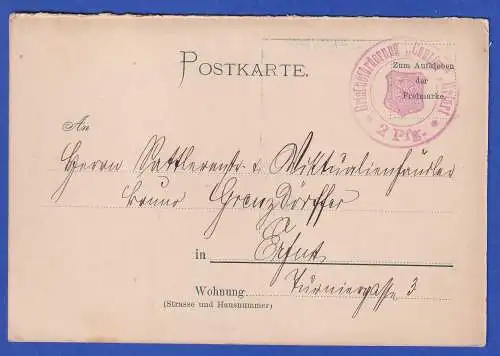 POSTKARTE.
Briefbeförderung „Courier" Erfurt
2 Pfg.
Zum Aufkleben
der
Freimarke.
An
Herrn Sattlermstr. & Viktualienhändler
Bruno Grenzdörffer
in Erfurt
Wohnung Turniergasse 3
(Strasse und Hausnummer)